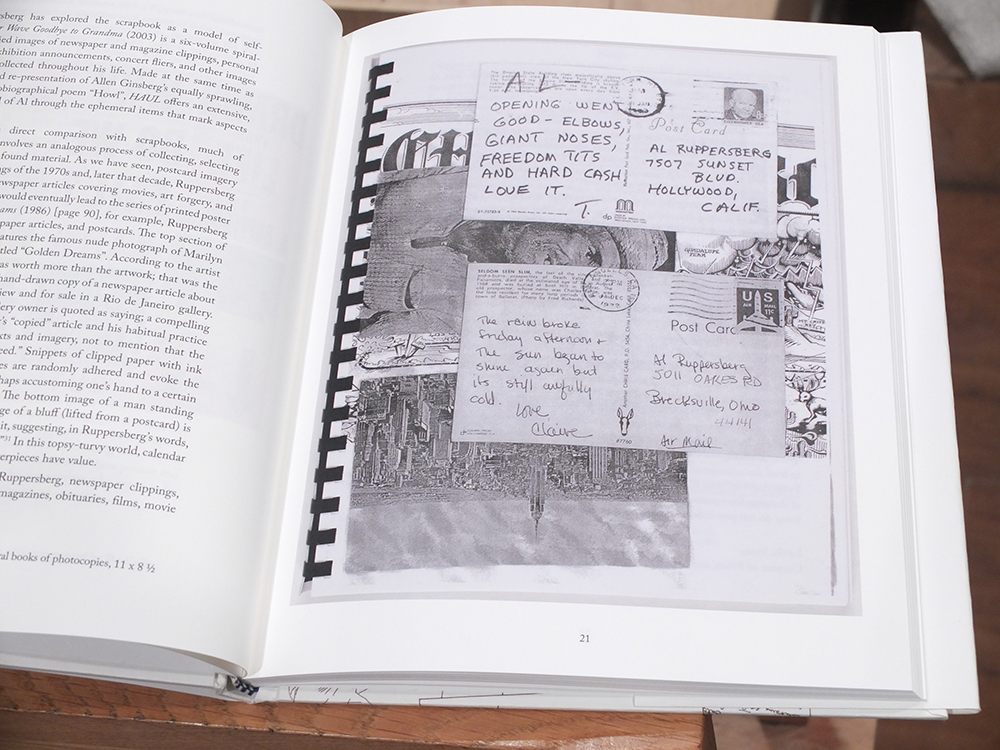 sberg has explored the scrapbook as a model of self-
r Wave Goodbye to Grandma (2003) is a six-volume spiral-
ied images of newspaper and magazine clippings, personal
xhibition announcements, concert fliers, and other images
ollected throughout his life. Made at the same time as
d re-presentation of Allen Ginsberg's equally sprawling,
obiographical poem "Howl", HAUL offers an extensive,
l of Al through the ephemeral items that mark aspects
direct comparison with scrapbooks, much of
nvolves an analogous process of collecting, selecting
found material. As we have seen, postcard imagery
gs of the 1970s and, later that decade, Ruppersberg
wspaper articles covering movies, art forgery, and
would eventually lead to the series of printed poster
ams (1986) [page 90], for example, Ruppersberg
paper articles, and postcards. The top section of
atures the famous nude photograph of Marilyn
tled "Golden Dreams". According to the artist
as worth more than the artwork; that was the
hand-drawn copy of a newspaper article about
view and for sale in a Rio de Janeiro gallery.
ery owner is quoted as saying; a compelling
's "copied" article and his habitual practice
xts and imagery, not to mention that the
eed." Snippets of clipped paper with ink
es are randomly adhered and evoke the
haps accustoming one's hand to a certain
The bottom image of a man standing
ge of a bluff (lifted from a postcard) is
it, suggesting, in Ruppersberg's words,
"31 In this topsy-turvy world, calendar
erpieces have value.
Ruppersberg, newspaper clippings,
magazines, obituaries, films, movie
al books of photocopies, 11 x 8 ½
AL—
OPENING WENT
GOOD - ELBOWS,
GIANT NOSES,
FREEDOM TITS
AND HARD CASH
LOVE IT.
T.
Post Card
AL RUPPERSBERG
7507 SUNSET
BLVD.
HOLLYWOOD,
CALIF.
GUADALUPE
PEAK
SELDOM SEEN SLIM,
The rain broke
friday afternoon +
The sun began to
shine again but
its still awfully
cold.
Love
Claire
US
AIR MAIL
11c
Post Card
Al Ruppersberg
5011 OAKES RD
Brecksville, Ohio
44141
Air Mail
21